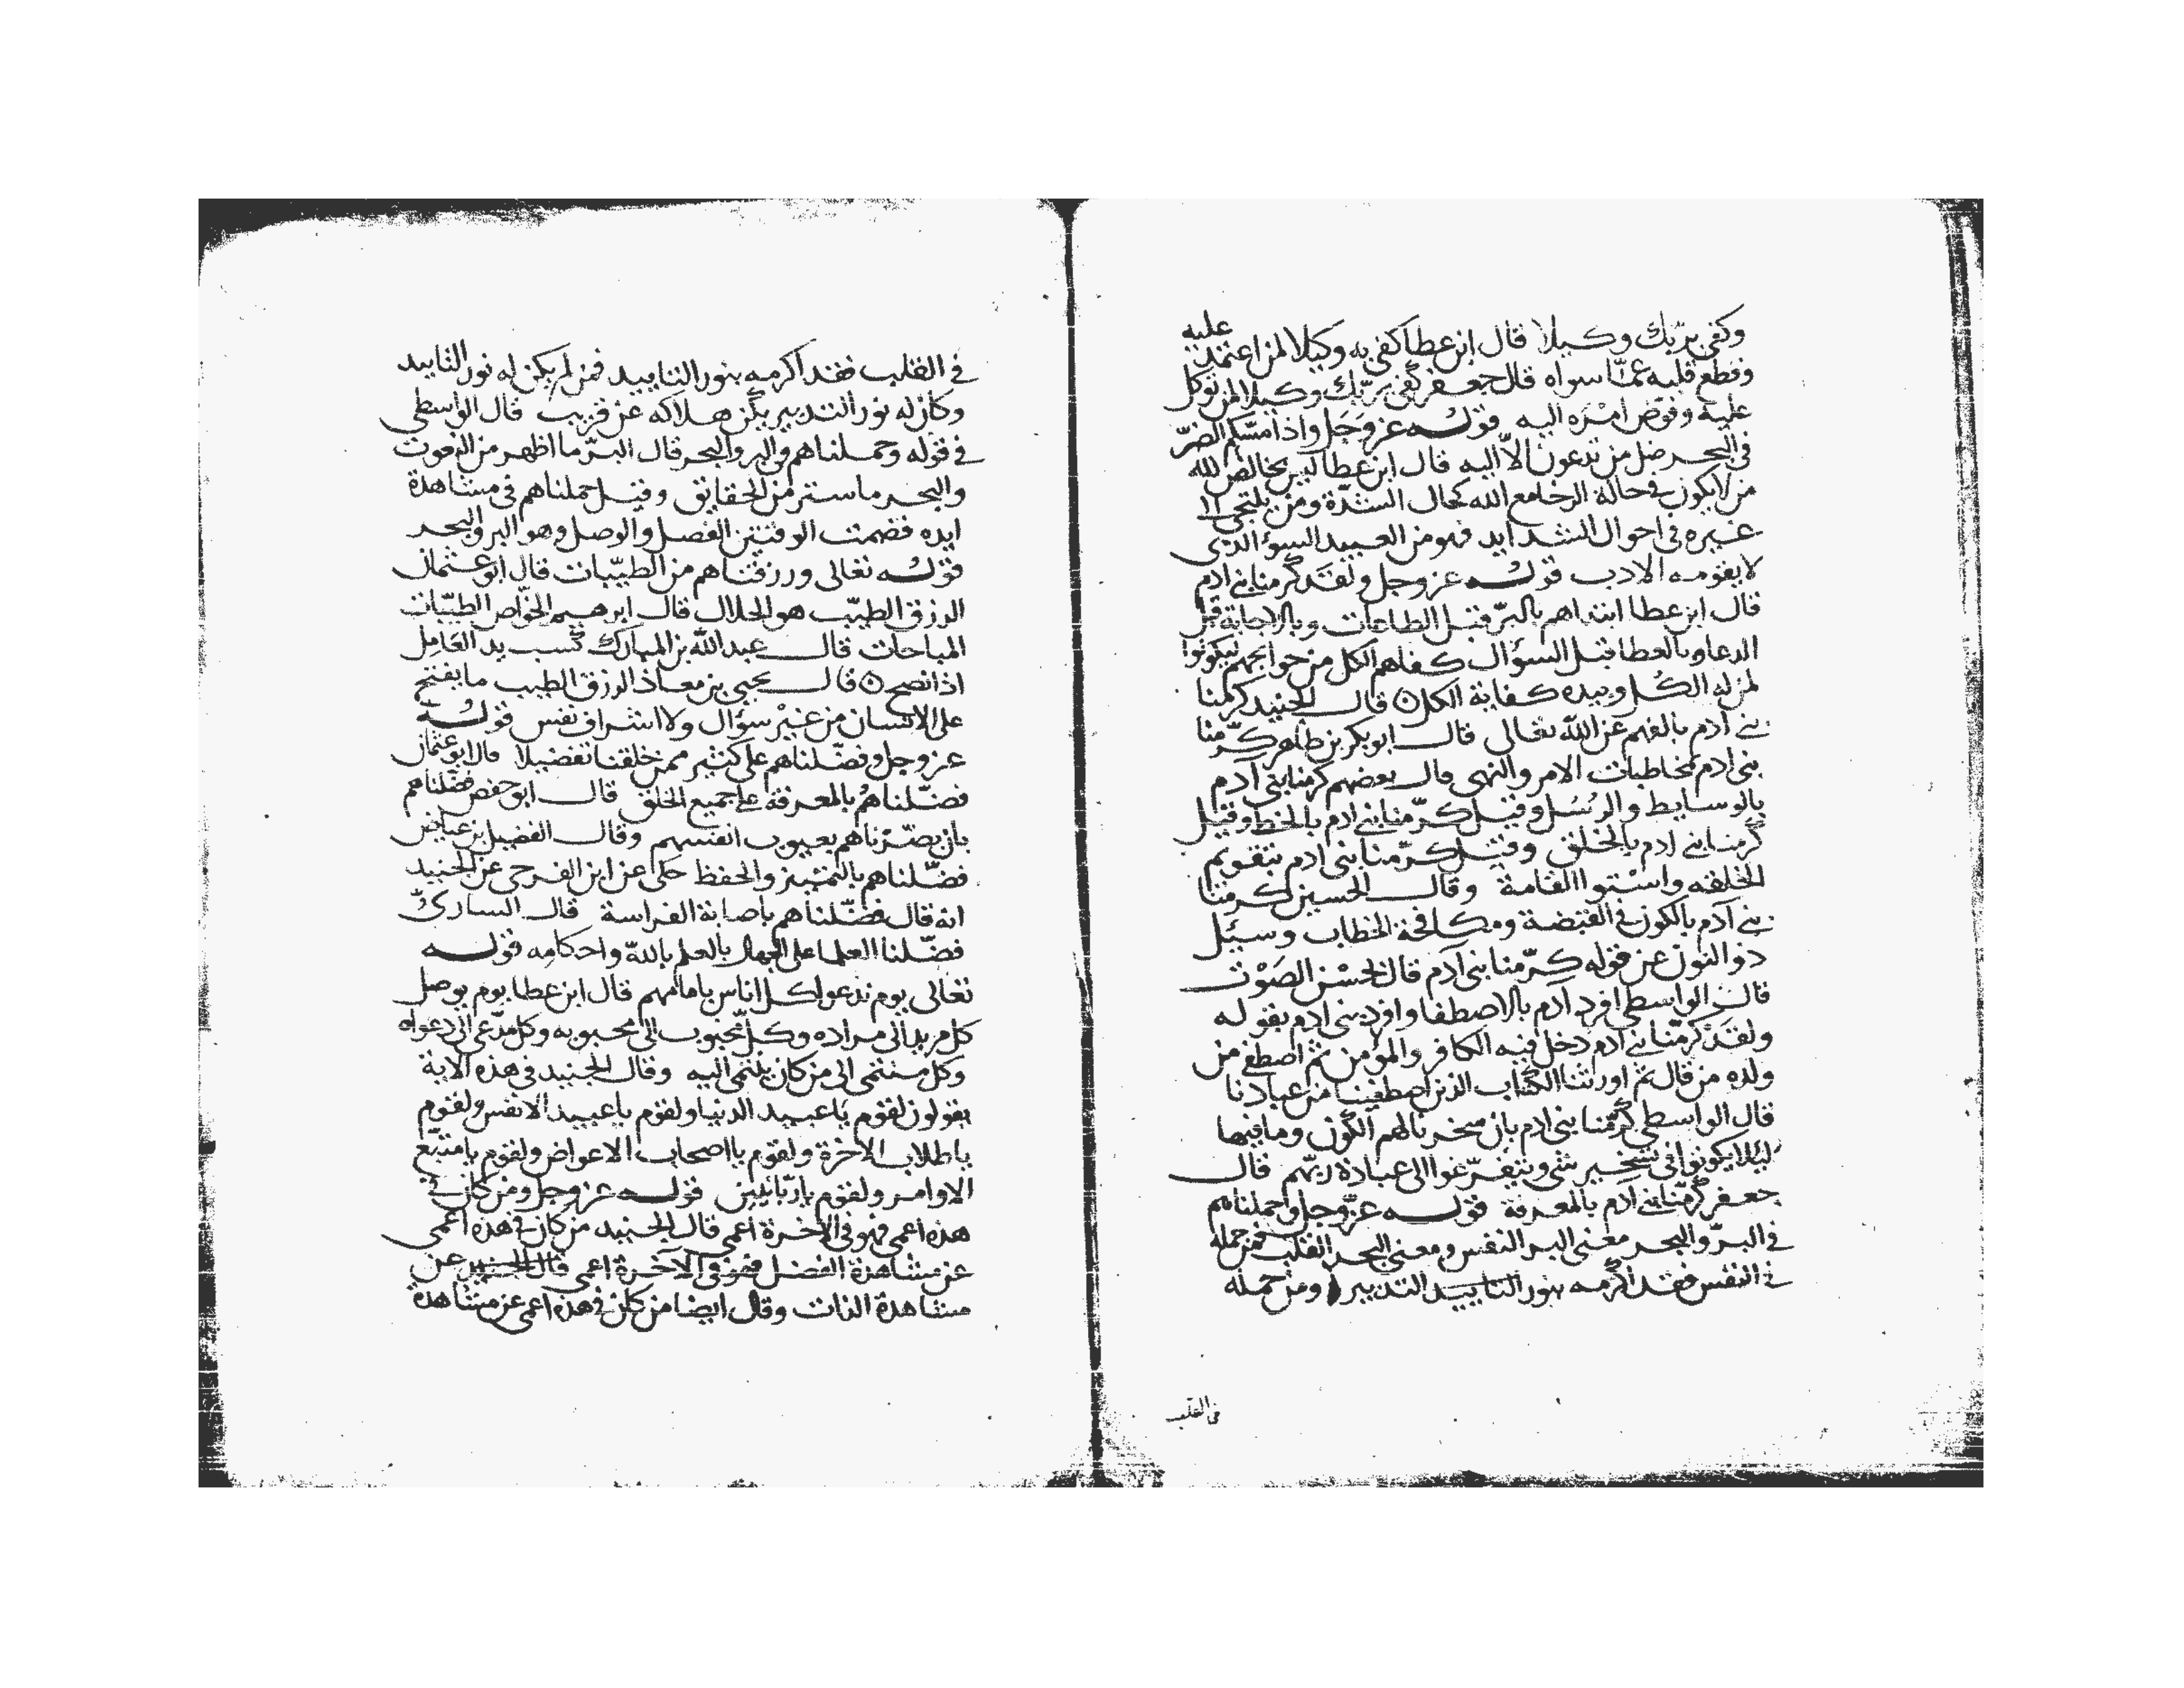 وكفى بربّك وكيلا قال ابن عطا كفى به وكيلا لمن اعتمد عليه
وقطع قلبه عمّا سواه قال جعفر كفى بربّك وكيلا لمن توكل
عليه وفوّض امْرَه اليه قولـه عز وَجَل واذا مسّكم الضرّ
فى البحر ضل من تدعون الاّ اليه قال ابن عطا ليس بخالص لله
من لا يكون فى حالة الرخا مع الله كحال الشدّة ومن يلتجى الا
غيره فى احوال الشدايد فهو من العبيد السوء الذى
لا يقومه الادب قولـه عز وجل ولقَد كرمنا بنى ادم
قال ابن عطا ابتداهم بالبرّ قبل الطاعات وبالاجابة قبل
الدعا وبالعطا قبل السؤال كفاهم الكل من حوايجهم ليكونوا
لمن له الكُل وبيده كفاية الكل ن قال الجنيد كرمنا
بنى آدم بالفهم عن الله تعالى قال ابو بكر بن طاهر كرّمنا
بنى ادم بمخاطبات الامر والنهى وقال بعضهم كرمنا بنى آدم
بالوسايط والرسُل وقيل كرّمنا بنى ادم بالخط وقيل
كرمنا بنى ادم بالخلق وقيل كرّمنا بنى ادم بتقويم
الخلقه واسْتوا القامة وقال الحسين كرمنا
بنى آدم بالكون فى القبضة ومكافحة الخطاب وسيَل
ذو النون عن قوله كرّمنا بنى آدم قال بحسْن الصَوْت
قال الواسطى افرد ادم بالاصطفا وافرد بنى ادم بقوله
ولقَد كرمّنا بنى ادم دخل فيه الكافر والمؤمن ثم اصطفى من
ولده من قال ثم اورثنا الكتاب الذين اصطفينا من عبادنا
قال الواسطى كرّمنا بنى ادم بان سخرنا لهم الكون وما فيها
ليَلا يكونوا فى تسخير شى ويتفرّغوا الى عبادة ربّهم قال
جعفر كرّمنا بنى ادم بالمعرفة قولـه عزّ وجل وحملناهم
فى البرّ والبحر معنى البر النفس ومعنى البحر القلب فمن حمله
فى النفس فقد اكرمه بنور التاييد التدبير ومن حمله
فى القلب
فى القلب فقد اكرمه بنور التاييد فمن لم يكن له نور التاييد
وكان له نور التدبير يكن هلاكه عن قريب قال الواسطى
فى قوله وحملناهم فى البر والبحر قال البرّ ما اظهر من النعوت
والبحر ما ستر من الحقايق وقيل حملناهم فى مشاهدة
ايده فضمت الوقتين الفصل والوصل وهو البر والبحر
قولـه تعالى ورزقناهم من الطيّبات قال ابو عثمان
الرزق الطيّب هو الحلال قال ابرهيم الخوّاص الطيّبات
المباحات قال عبد الله بن المبارك كسب يد العَامِل
اذا نصح ن قال يحيى بن معاذ الرزق الطيب ما يفتح
على الانسان من غيْر سؤال ولا اشراف نفس قولـه
عز وجل وفضّلناهم على كثير ممن خلقنا تفضيلا قال ابو عثمان
فضّلناهُم بالمعرفة على جميع الخلق قال ابو حفص فضّلناهم
بان بصّرناهم بعيوب انفسهم وقال الفضيل بن عياض
فضّلناهم بالتمييز والحفظ حكى عن ابن الفرحى عن الجنيد
انه قال فضّلناهم باصابة الفراسة قال السارىّ
فضّلنا العلما على الجهال بالعلم بالله واحكامِه قولـه
تعالى يوم ندعو كل اناس بامامهم قال ابن عطا يوم يوصل
كل مريد الى مراده وكل محبوب الى محبوبه وكل مدّعى الى دعواه
وكل منتمى الى من كان ينتمى اليه وقال الجنيد فى هذه الاية
يقولون لقوم يا عبيد الدنيا ولقوم يا عبيد الانفس ولقوم
يا طلاب الاخرة ولقوم يا اصحاب الاعواض ولقوم يا متبّع
الاوامر ولقوم يا ربّانيين قولـه عز وجل ومن كان فى
هذه اعمى فهو فى الاخرة اعمى قال الجنيد من كان فى هذه اعمى
عن مشاهدة الفضل فهو فى الآخرة اعمى قال الجنيد عن
مشاهدة الذات وقال ايضا من كان فى هذه اعمى عن مشاهدة